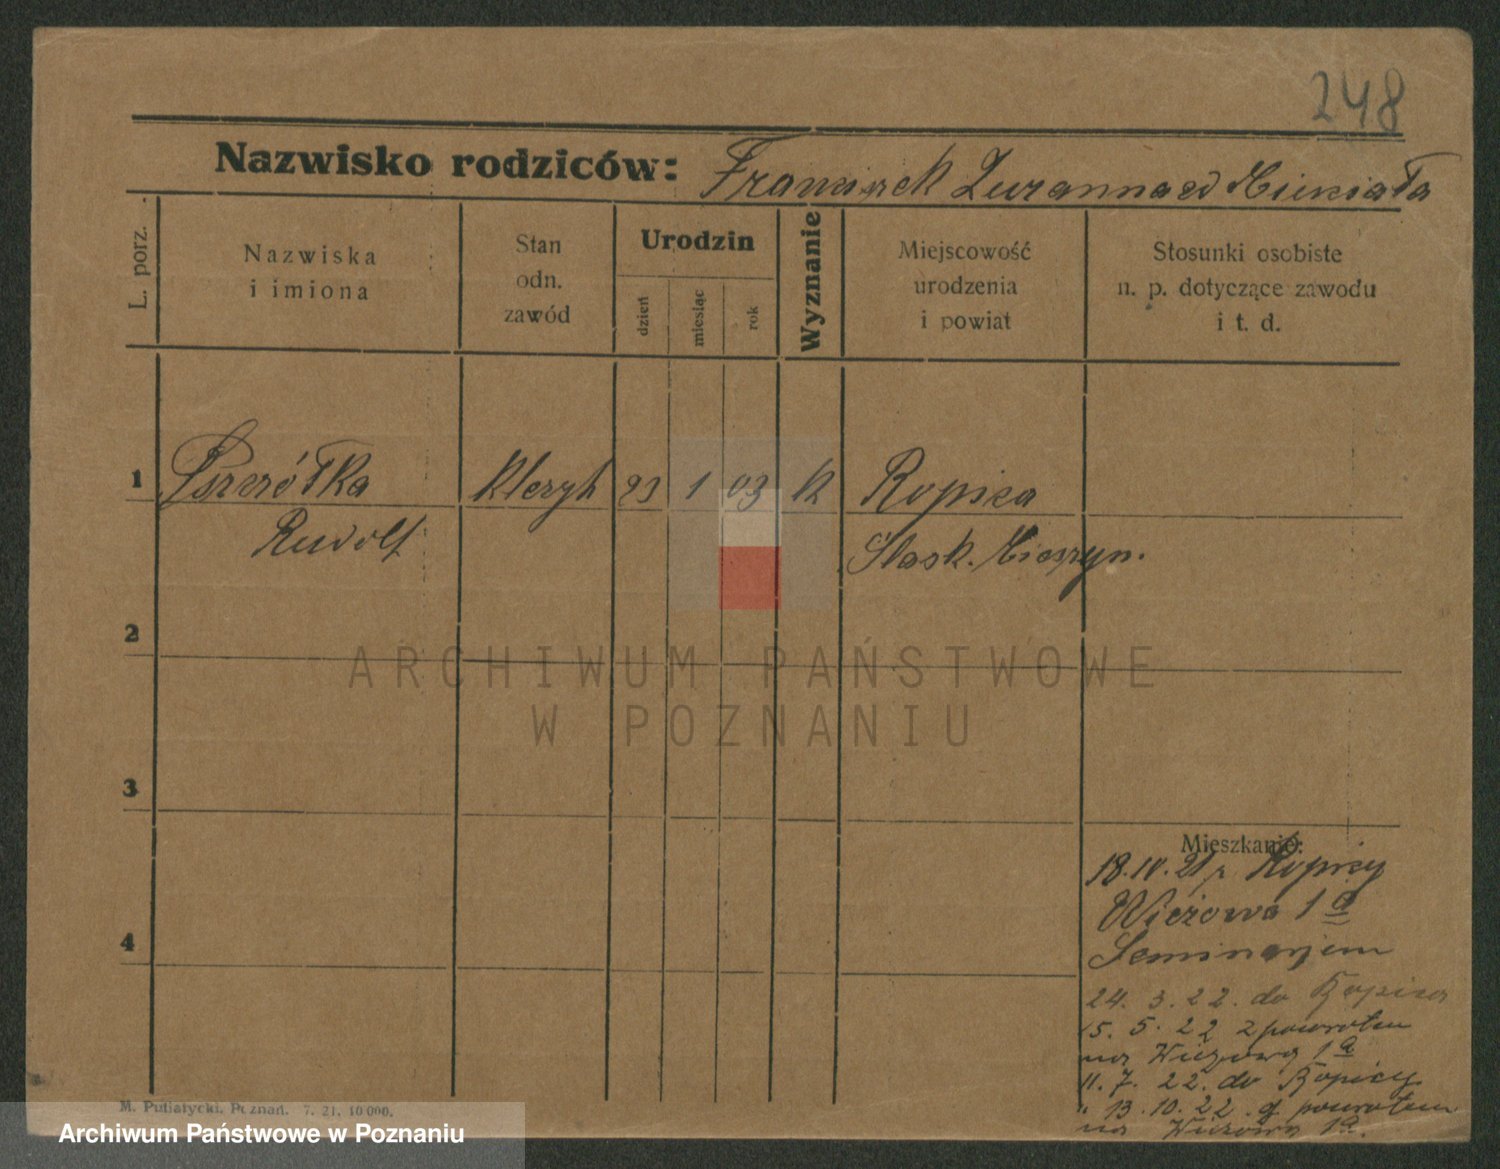 248
Nazwisko rodziców: Franciszek Zuzanna zd
L. porz.
Nazwiska
i imiona
Stan
odn.
zawód
Urodzin
dzień
miesiąc
rok
Wyznanie
Miejscowość
urodzenia
i powiat
Stosunki osobiste
n. p. dotyczące zawodu
i t. d.
1 Pszczółka kleryk 23 1 03 k Ropica
Rudolf Śląsk. Cieszyn.
2
ARCHIWUM PAŃSTWOWE
W POZNANIU
3
Mieszkanie:
18.IV.21 z Ropicy
Wieżowa 1a
4
Seminarjum
24. 3. 22. do Ropica
15. 5. 22 z powrotem
na Wieżową 1a
11. 7. 22. do Ropicy
13.10.22. z powrotem
na Wieżową 1a.
M. Putiatycki, Poznań. 7. 21. 10 000.
Archiwum Państwowe w Poznaniu